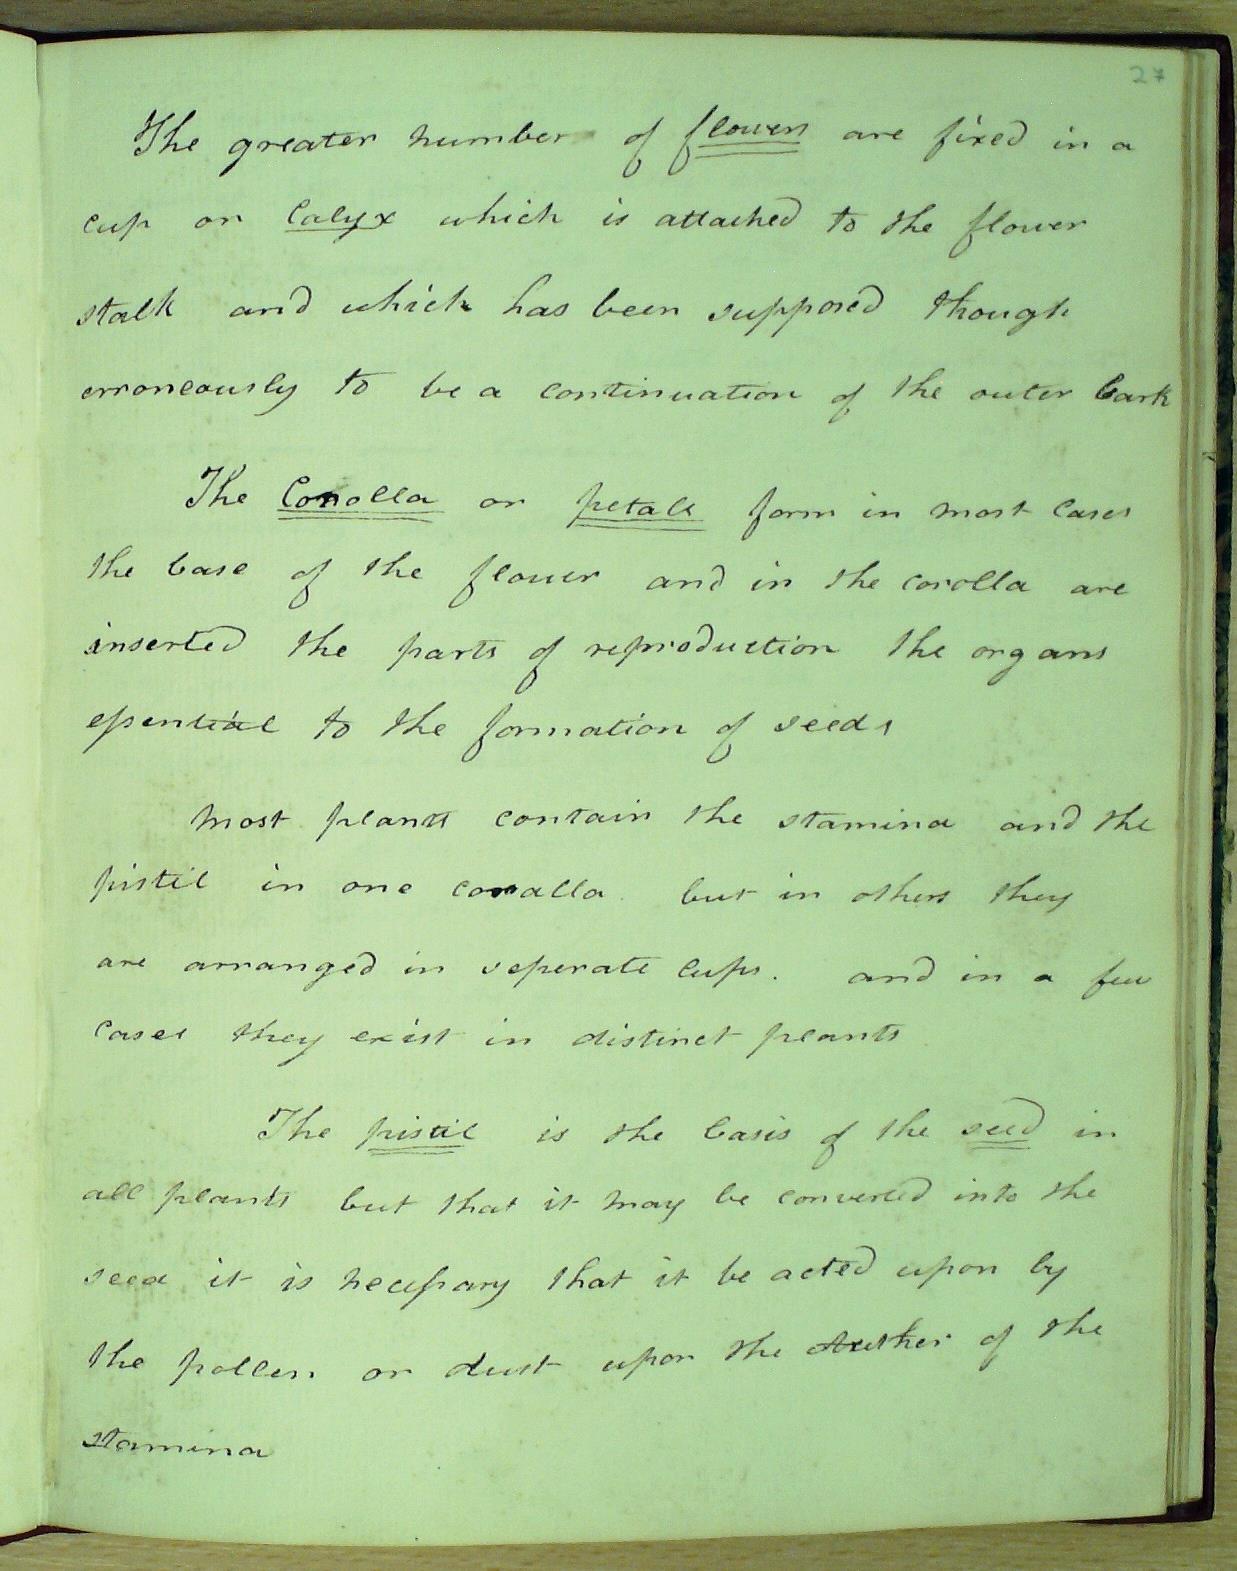 27
The greater number of flowers are fixed in a
cup or Calyx which is attached to the flower
stalk and which has been supposed though
erroneously to be a continuation of the outer bark
The Corolla or petals form in most cases
the base of the flower and in the corolla are
inserted the parts of reproduction the organs
essential to the formation of seeds
Most plants contain the stamina and the
pistil in one coralla but in others they
are arranged in seperate cups. and in a few
cases they exist in distinct plants
The pistil is the basis of the seed in
all plants but that it may be converted into the
seed it is necessary that it be acted upon by
the pollen or dust upon the of the
stamina